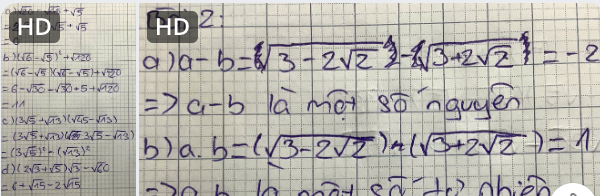 HD
= 0
b) (√6 - √5)² + √120
= (√6 - √5)(√6 - √5) + √120
= 6 - √30 - √30 + 5 + √120
= 11
c) (3√5 + √13)(√45 - √13)
= (3√5 + √13)(3√5 - √13)
= (3√5)² - (√13)²
d) (2√3 + √5)√3 - √60
= 6 + √15 - 2√15
HD
2:
a) a - b = {√3 - 2√2} - {√3 + 2√2} = -2
=> a - b là một số nguyên
b) a . b = (√3 - 2√2) . (√3 + 2√2) = 1
=> a . b là số tự nhiên